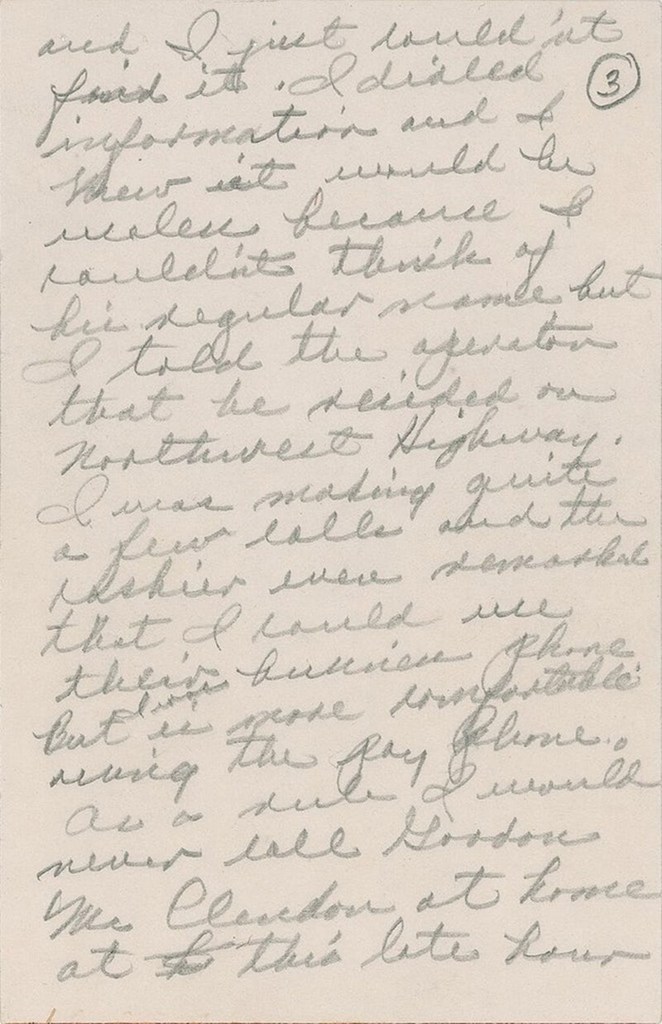 and I just could'nt
find it. I dialed
3
information and I
knew it would be
useless because I
couldn't think of
his regular name, but
I told the operator
that he resided on
Northwest Highway.
I was making quite
a few calls and the
cashier even remarked
that I could use
their business phone
But I was more comfortable
using the pay phone.
As a rule I would
never call Gordon
Mc Clendon at home
at this late hour